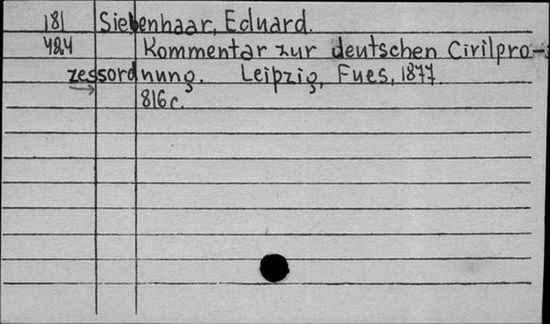 181 Siebenhaar, Eduard.
424 Kommentar zur deutschen Civilpro-
zessordnung. Leipzig, Fues, 1877.
816 c.